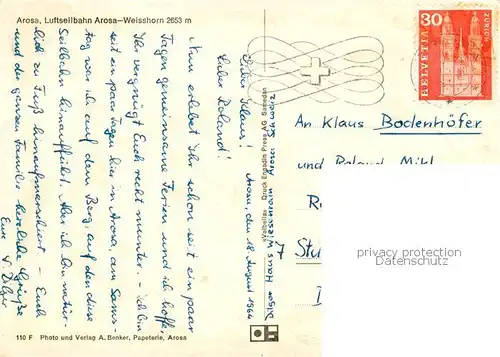 Arosa, Luftseilbahn Arosa—Weisshorn 2653 m
Arosa, den 18. August 1964
Lieber Klaus!
Lieber Roland!
Nun erlebet Ihr schon seit ein paar
Tagen gemeinsame Ferien und ich hoffe,
Ihr vergnügt Euch recht munter. – Ich bin
seit ein paar Tagen hier in Arosa, am Sams-
tag war ich auf dem Berg, auf den diese
Seilbahn hinaufführt. Aber ich bin natür-
lich zu Fuß hinaufmarschiert. – Euch
und der ganzen Familie herzliche Grüße
Eure V. Dilger
110 F Photo und Verlag A. Benker, Papeterie, Arosa
«Valbella» Druck Engadin Press AG Samedan
Dilger Haus Wiesenrain Arosa Schweiz
30
HELVETIA
ZÜRICH
An Klaus Bodenhöfer
und Roland Mihl
7 Stu
privacy protection
Datenschutz